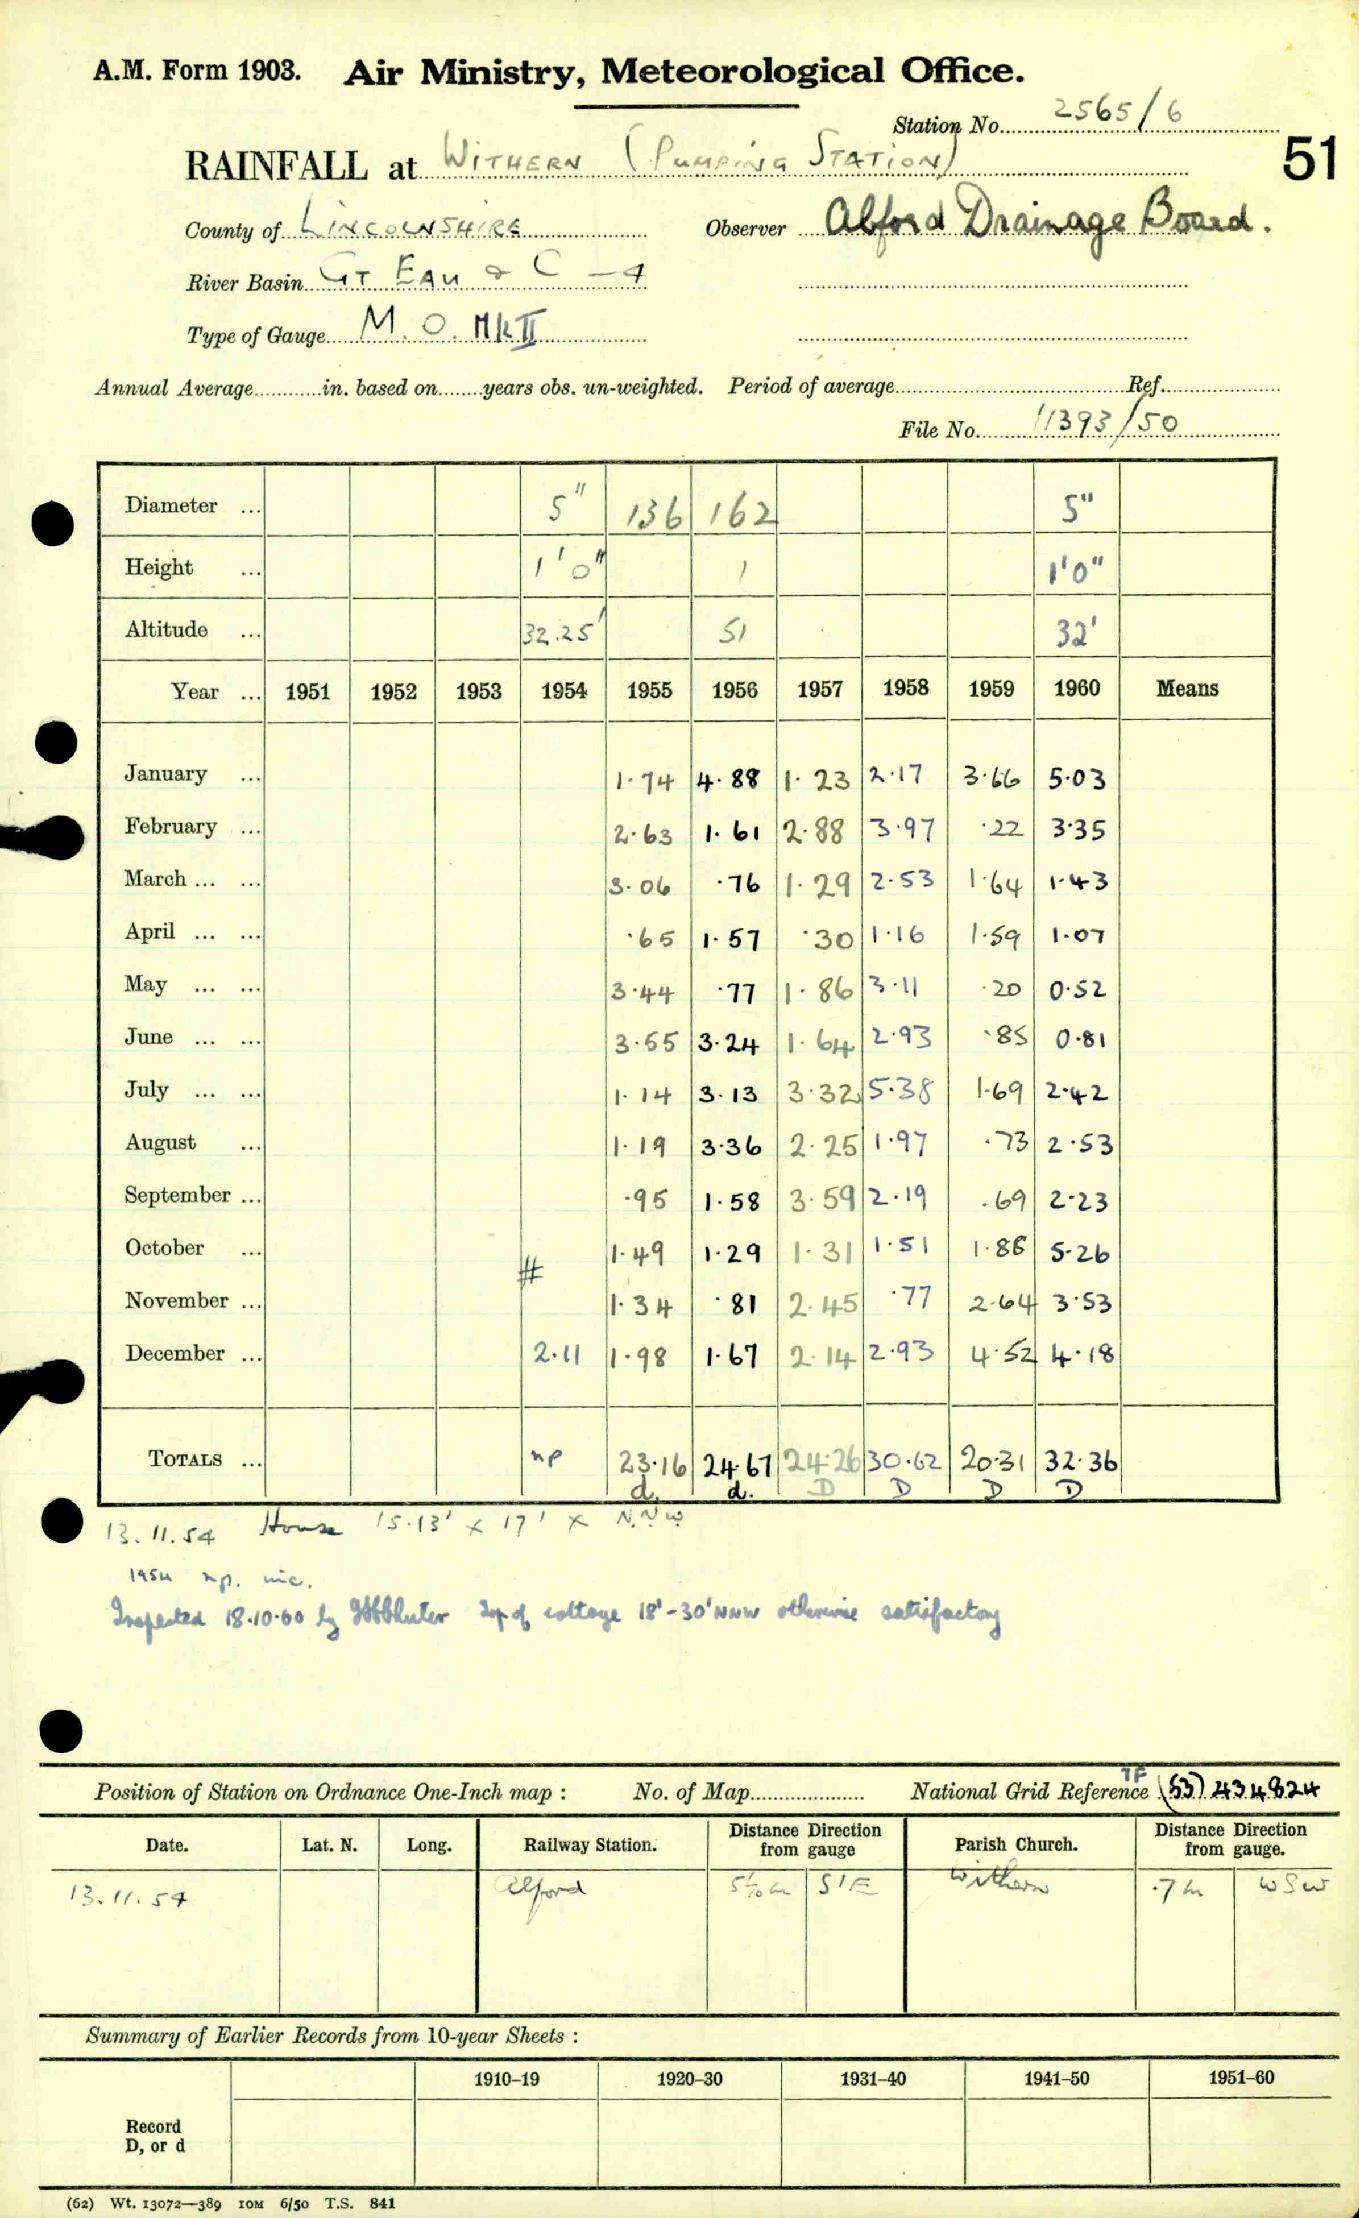 A.M. Form 1903. Air Ministry, Meteorological Office.
Station No. 2565/6
51
RAINFALL at WITHERN (PUMPING STATION)
County of LINCOLNSHIRE Observer Alford Drainage Board.
River Basin GT EAU & C -4
Type of Gauge M.O. MkII
Annual Average in. based on years obs. un-weighted. Period of average Ref.
File No. 11393/50
Diameter ... 5" 136 162 5"
Height ... 1'0" 1 1'0"
Altitude ... 32.25' 51 32'
Year ... 1951 1952 1953 1954 1955 1956 1957 1958 1959 1960 Means
January ... 1.74 4.88 1.23 2.17 3.66 5.03
February ... 2.63 1.61 2.88 3.97 .22 3.35
March ... ... 3.06 .76 1.29 2.53 1.64 1.43
April ... ... .65 1.57 .30 1.16 1.59 1.07
May ... ... 3.44 .77 1.86 3.11 .20 0.52
June ... ... 3.55 3.24 1.64 2.93 .85 0.81
July ... ... 1.14 3.13 3.32 5.38 1.69 2.42
August ... 1.19 3.36 2.25 1.97 .73 2.53
September ... .95 1.58 3.59 2.19 .69 2.23
October ... 1.49 1.29 1.31 1.51 1.88 5.26
#
November ... 1.34 .81 2.45 .77 2.64 3.53
December ... 2.11 1.98 1.67 2.14 2.93 4.52 4.18
TOTALS ... np 23.16 24.67 24.26 30.62 20.31 32.36
d. d. D D D D
13.11.54 House 15.13' x 17' x N.N.W
1954 np. inc.
Inspected 18.10.60 by Top of cottage 18'-30'NNW otherwise satisfactory
Position of Station on Ordnance One-Inch map : No. of Map National Grid Reference TF (53) 434824
Date. Lat. N. Long. Railway Station. Distance from gauge Direction Parish Church. Distance from gauge. Direction
13.11.54 Alford S'E Withern .7m WSW
Summary of Earlier Records from 10-year Sheets :
1910–19 1920–30 1931–40 1941–50 1951–60
Record
D, or d
(62) Wt. 13072—389 10M 6/50 T.S. 841